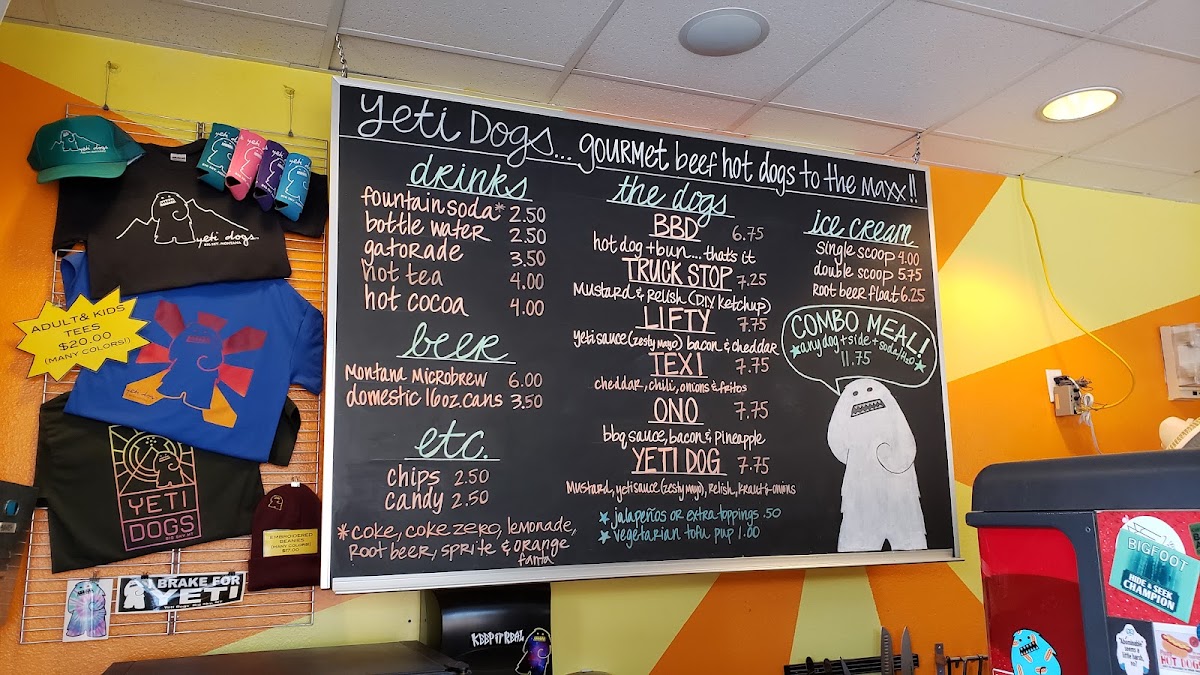 yeti Dogs... gourmet beef hot dogs to the maxx!!
drinks
fountain soda* 2.50
bottle water 2.50
gatorade 3.50
hot tea 4.00
hot cocoa 4.00
beer
Montana Microbrew 6.00
domestic 16oz. cans 3.50
etc.
chips 2.50
candy 2.50
*coke, coke zero, lemonade,
root beer, sprite & orange
fanta
the dogs
BBD 6.75
hot dog + bun... that's it
TRUCK STOP 7.25
Mustard & relish (DIY ketchup)
LIFTY 7.75
yeti sauce (zesty mayo) bacon & cheddar
TEXI 7.75
cheddar, chili, onions & fritos
ONO 7.75
bbq sauce, bacon & pineapple
YETI DOG 7.75
Mustard, yeti sauce (zesty mayo), relish, kraut & onions
★ jalapeños or extra toppings .50
★ vegetarian tofu pup 1.00
ice cream
single scoop 4.00
double scoop 5.75
root beer float 6.25
COMBO MEAL!
★ any dog + side + soda/H2O ★
11.75
yeti dogs
yeti
yeti dogs
BIG SKY, MONTANA
ADULT & KIDS
TEES
$20.00
(MANY COLORS!)
YETI
DOGS
BIG SKY, MT
EMBROIDERED
BEANIES
(MANY COLORS)
I BRAKE FOR
YETI
KEEP IT REAL
BIGFOOT
HIDE & SEEK
CHAMPION
"Abominable"
seems a
little harsh,
no?
HOT DOGS